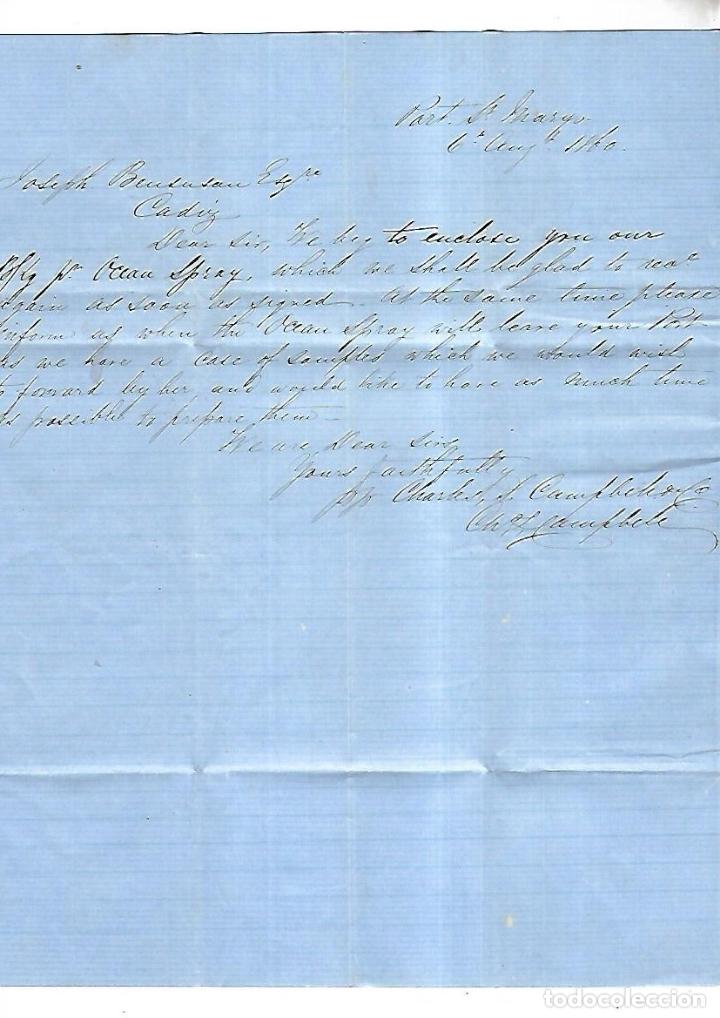 Port St Marys
6th Augt 1860.
Joseph Bensusan Esqre
Cadiz
Dear Sir, We beg to enclose you our
Bs/Lg pr Ocean Spray, which we shall be glad to recve
again as soon as signed. At the same time please
inform us when the Ocean Spray will leave your Port
as we have a case of samples which we would wish
to forward by her, and would like to have as much time
as possible to prepare them—
We are, Dear Sir,
Yours faithfully
pp Charles H. Campbell & Co
Chs H Campbell
todocoleccion